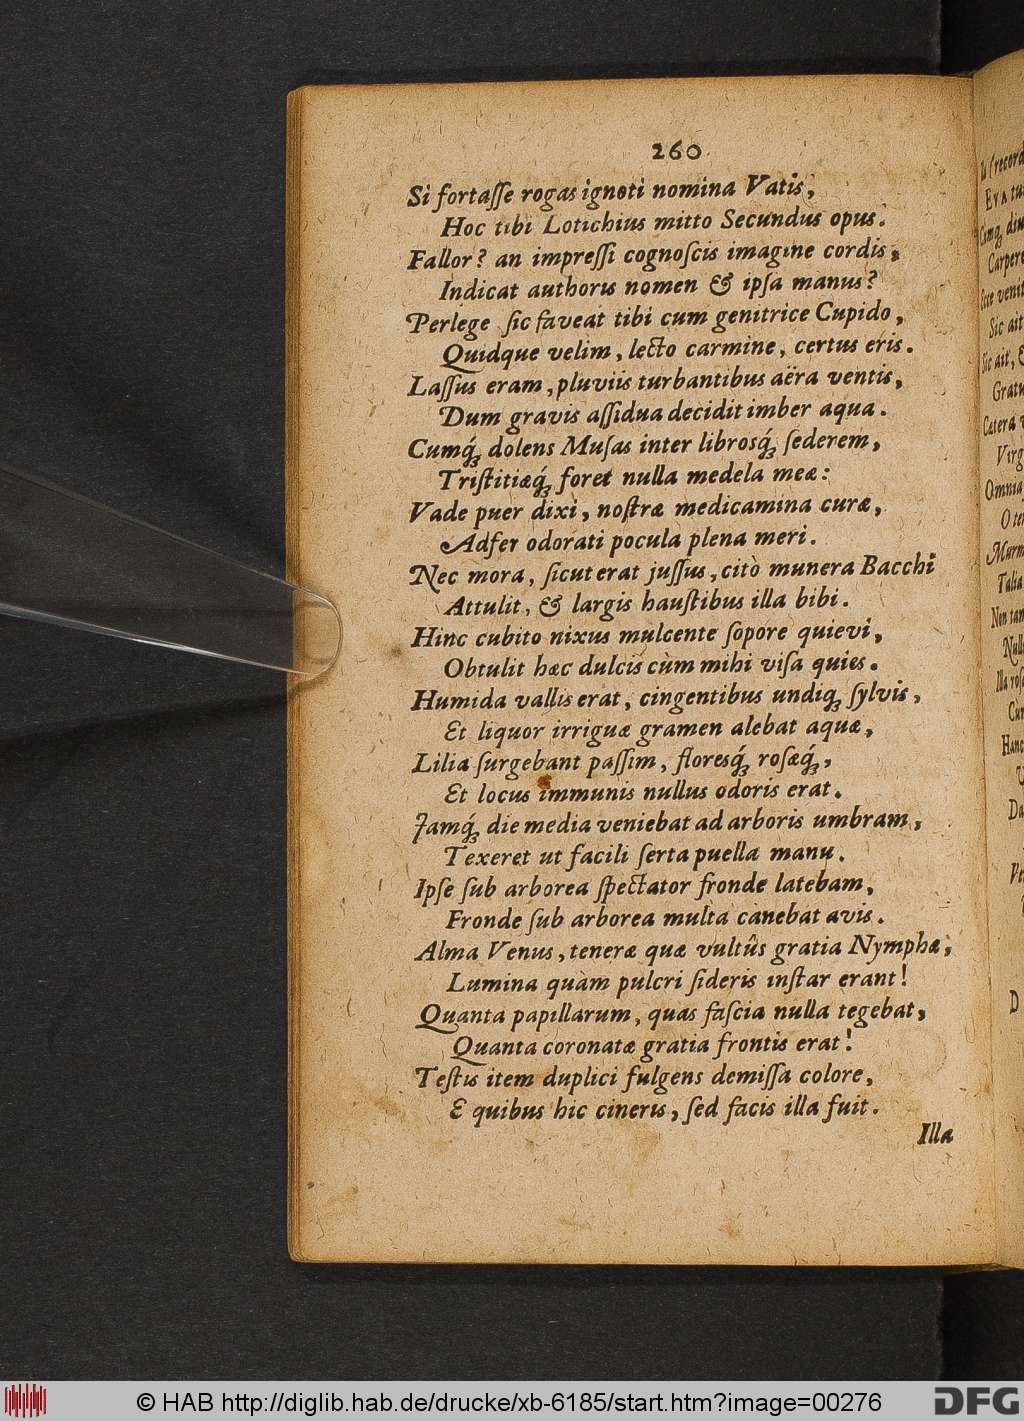 260
Si fortasſe rogas ignoti nomina Vatis,
Hoc tibi Lotichius mitto Secundus opus.
Fallor? an impreſſi cognoſcis imagine cordis,
Indicat authoris nomen & ipſa manus?
Perlege ſic faveat tibi cum genitrice Cupido,
Quidque velim, lecto carmine, certus eris.
Laſſus eram, pluviis turbantibus aëra ventis,
Dum gravis aſſidua decidit imber aqua.
Cumq́; dolens Muſas inter librosq́; ſederem,
Triſtitiæq́; foret nulla medela meæ:
Vade puer dixi, noſtræ medicamina curæ,
Adfer odorati pocula plena meri.
Nec mora, ſicut erat juſſus, citò munera Bacchi
Attulit, & largis hauſtibus illa bibi.
Hinc cubito nixus mulcente ſopore quievi,
Obtulit hæc dulcis cùm mihi viſa quies.
Humida vallis erat, cingentibus undiq; ſylvis,
Et liquor irriguæ gramen alebat aquæ,
Lilia ſurgebant paſſim, floresq́; roſæq́;,
Et locus immunis nullus odoris erat.
Jamq́; die media veniebat ad arboris umbram,
Texeret ut facili ſerta puella manu.
Ipſe ſub arborea ſpectator fronde latebam,
Fronde ſub arborea multa canebat avis.
Alma Venus, teneræ quæ vultûs gratia Nymphæ,
Lumina quàm pulcri ſideris inſtar erant!
Quanta papillarum, quas faſcia nulla tegebat,
Quanta coronatæ gratia frontis erat!
Teſtis item duplici fulgens demiſſa colore,
E quibus hic cineris, ſed facis illa fuit.
Illa
© HAB http://diglib.hab.de/drucke/xb-6185/start.htm?image=00276
DFG